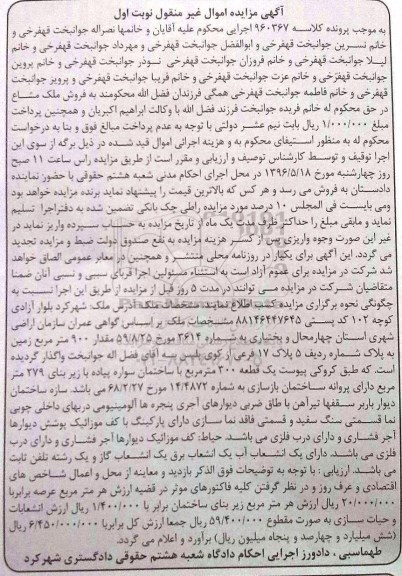 آگهی مزایده اموال غیر منقول نوبت اول
به موجب پرونده کلاسه ۹۶۰۳۶۷ اجرایی محکوم علیه آقایان و خانمها نصراله جوانبخت قهفرخی و
خانم نسرین جوانبخت قهفرخی و ابوالفضل جوانبخت قهفرخی و مهرداد جوانبخت قهفرخی و خانم
لیلا جوانبخت قهفرخی و خانم فروزان جوانبخت قهفرخی نوذر جوانبخت قهفرخی و خانم پروین
جوانبخت قهفرخی و خانم عزت جوانبخت قهفرخی و خانم فریبا جوانبخت قهفرخی و پرویز جوانبخت
قهفرخی و خانم فاطمه جوانبخت قهفرخی همگی فرزندان فضل الله محکومند به فروش ملک مشاع
در حق محکوم له خانم فریده جوانبخت فرزند فضل الله با وکالت ابراهیم اکبریان و همچنین پرداخت
مبلغ ۱/۰۰۰/۰۰۰ ریال بابت نیم عشر دولتی با توجه به عدم پرداخت مبالغ فوق و بنا به درخواست
محکوم له به منظور استیفای محکوم به و هزینه اجرائی اموال قید شده در ذیل برگه از سوی این
اجرا توقیف و توسط کارشناس توصیف و ارزیابی و مقرر است از طریق مزایده راس ساعت ۱۱ صبح
روز چهارشنبه مورخ ۱۳۹۶/۵/۱۸ در محل اجرای احکام مدنی شعبه هشتم حقوقی با حضور نماینده
دادستان به فروش می رسد و هر کس که بالاترین قیمت را پیشنهاد نماید برنده مزایده خواهد بود
ومی بایست فی المجلس ۱۰ درصد مورد مزایده راطی چک بانکی تضمین شده به دفتراجرا تسلیم
نماید و مابقی مبلغ را حداکثر ظرف مدت یک ماه از تاریخ مزایده به حساب سپرده واریز نماید در
غیر این صورت وجوه واریزی پس از کسر هزینه مزایده به نفع صندوق دولت ضبط و مزایده تجدید
می گردد. این آگهی برای یکبار در روزنامه محلی منتشر و همچنین در معابر عمومی الصاق خواهد
شد شرکت در مزایده برای عموم آزاد است به استثناء مسئولین اجرا قربای سببی و نسبی آنان ضمنا
متقاضیان شرکت در مزایده می توانند در مدت ۵ روز قبل از مزایده از طریق این اجرا نسبت به
چگونگی نحوه برگزاری مزایده کسب اطلاع نمایند: مشخصات ملک: آدرس ملک: شهرکرد بلوار آزادی
کوچه ۱۰۲ کد پستی ۸۸۱۴۶۴۴۷۶۴۵ مشخصات ملک: بر اساس گواهی عمران سازمان اراضی
شهری استان چهارمحال و بختیاری به شماره ۳۶۱۴ مورخ ۵۹/۸/۲۵ مقدار ۹۰۰ متر مربع زمین
به پلاک شماره ردیف ۵ پلاک ۱۷ فرعی از کوی پلیس به آقای فضل اله جوانبخت واگذار گردیده
است. که طبق کروکی پیوست یک قطعه ۳۰۰ مترمربع با ساختمان سواره پیاده با زیر بنای ۲۷۹ متر
مربع دارای پروانه ساختمان بازسازی به شماره ۱۴/۴۸۷۲ مورخ ۶۸/۲/۲۷ می باشد. سازه ساختمان
دیوار باربر سقفها تیرآهن با طاق ضربی دیوارهای آجری پنجره ها آلومینیومی دربهای داخلی چوبی
نما قسمتی سنگ سفید و قسمتی فاقد نما سازی دارای پارکینگ با کف موزائیک پوشش دیوارها
آجر فشاری و دارای درب فلزی می باشد. حیاط: کف موزائیک دیوارها آجر فشاری و دارای درب
فلزی می باشد. دارای یک انشعاب آب یک انشعاب برق یک انشعاب گاز و یک رشته تلفن ثابت
می باشد. ارزیابی : با توجه به توضیحات فوق الذکر بازدید و معاینه از محل و اعمال شاخص های
اقتصادی و عرف روز و در نظر گرفتن کلیه فاکتورهای موثر در قضیه ارزش هر متر مربع عرصه برابربا
۲۰/۰۰۰/۰۰۰ ریال ارزش هر متر مربع زیر بنای ساختمان برابر با ۱/۴۰۰/۰۰۰ ریال ارزش انشعابات
و حیاط سازی به صورت مقطوع ۵۹/۴۰۰/۰۰۰ ریال جمعا ارزش کل برابربا ۶/۴۵۰/۰۰۰/۰۰۰ ریال
(شش میلیارد و چهارصد و پنجاه میلیون ریال) برآورد و اعلام می گردد.
طهماسبی ، دادورز اجرایی احکام دادگاه شعبه هشتم حقوقی دادگستری شهرکرد